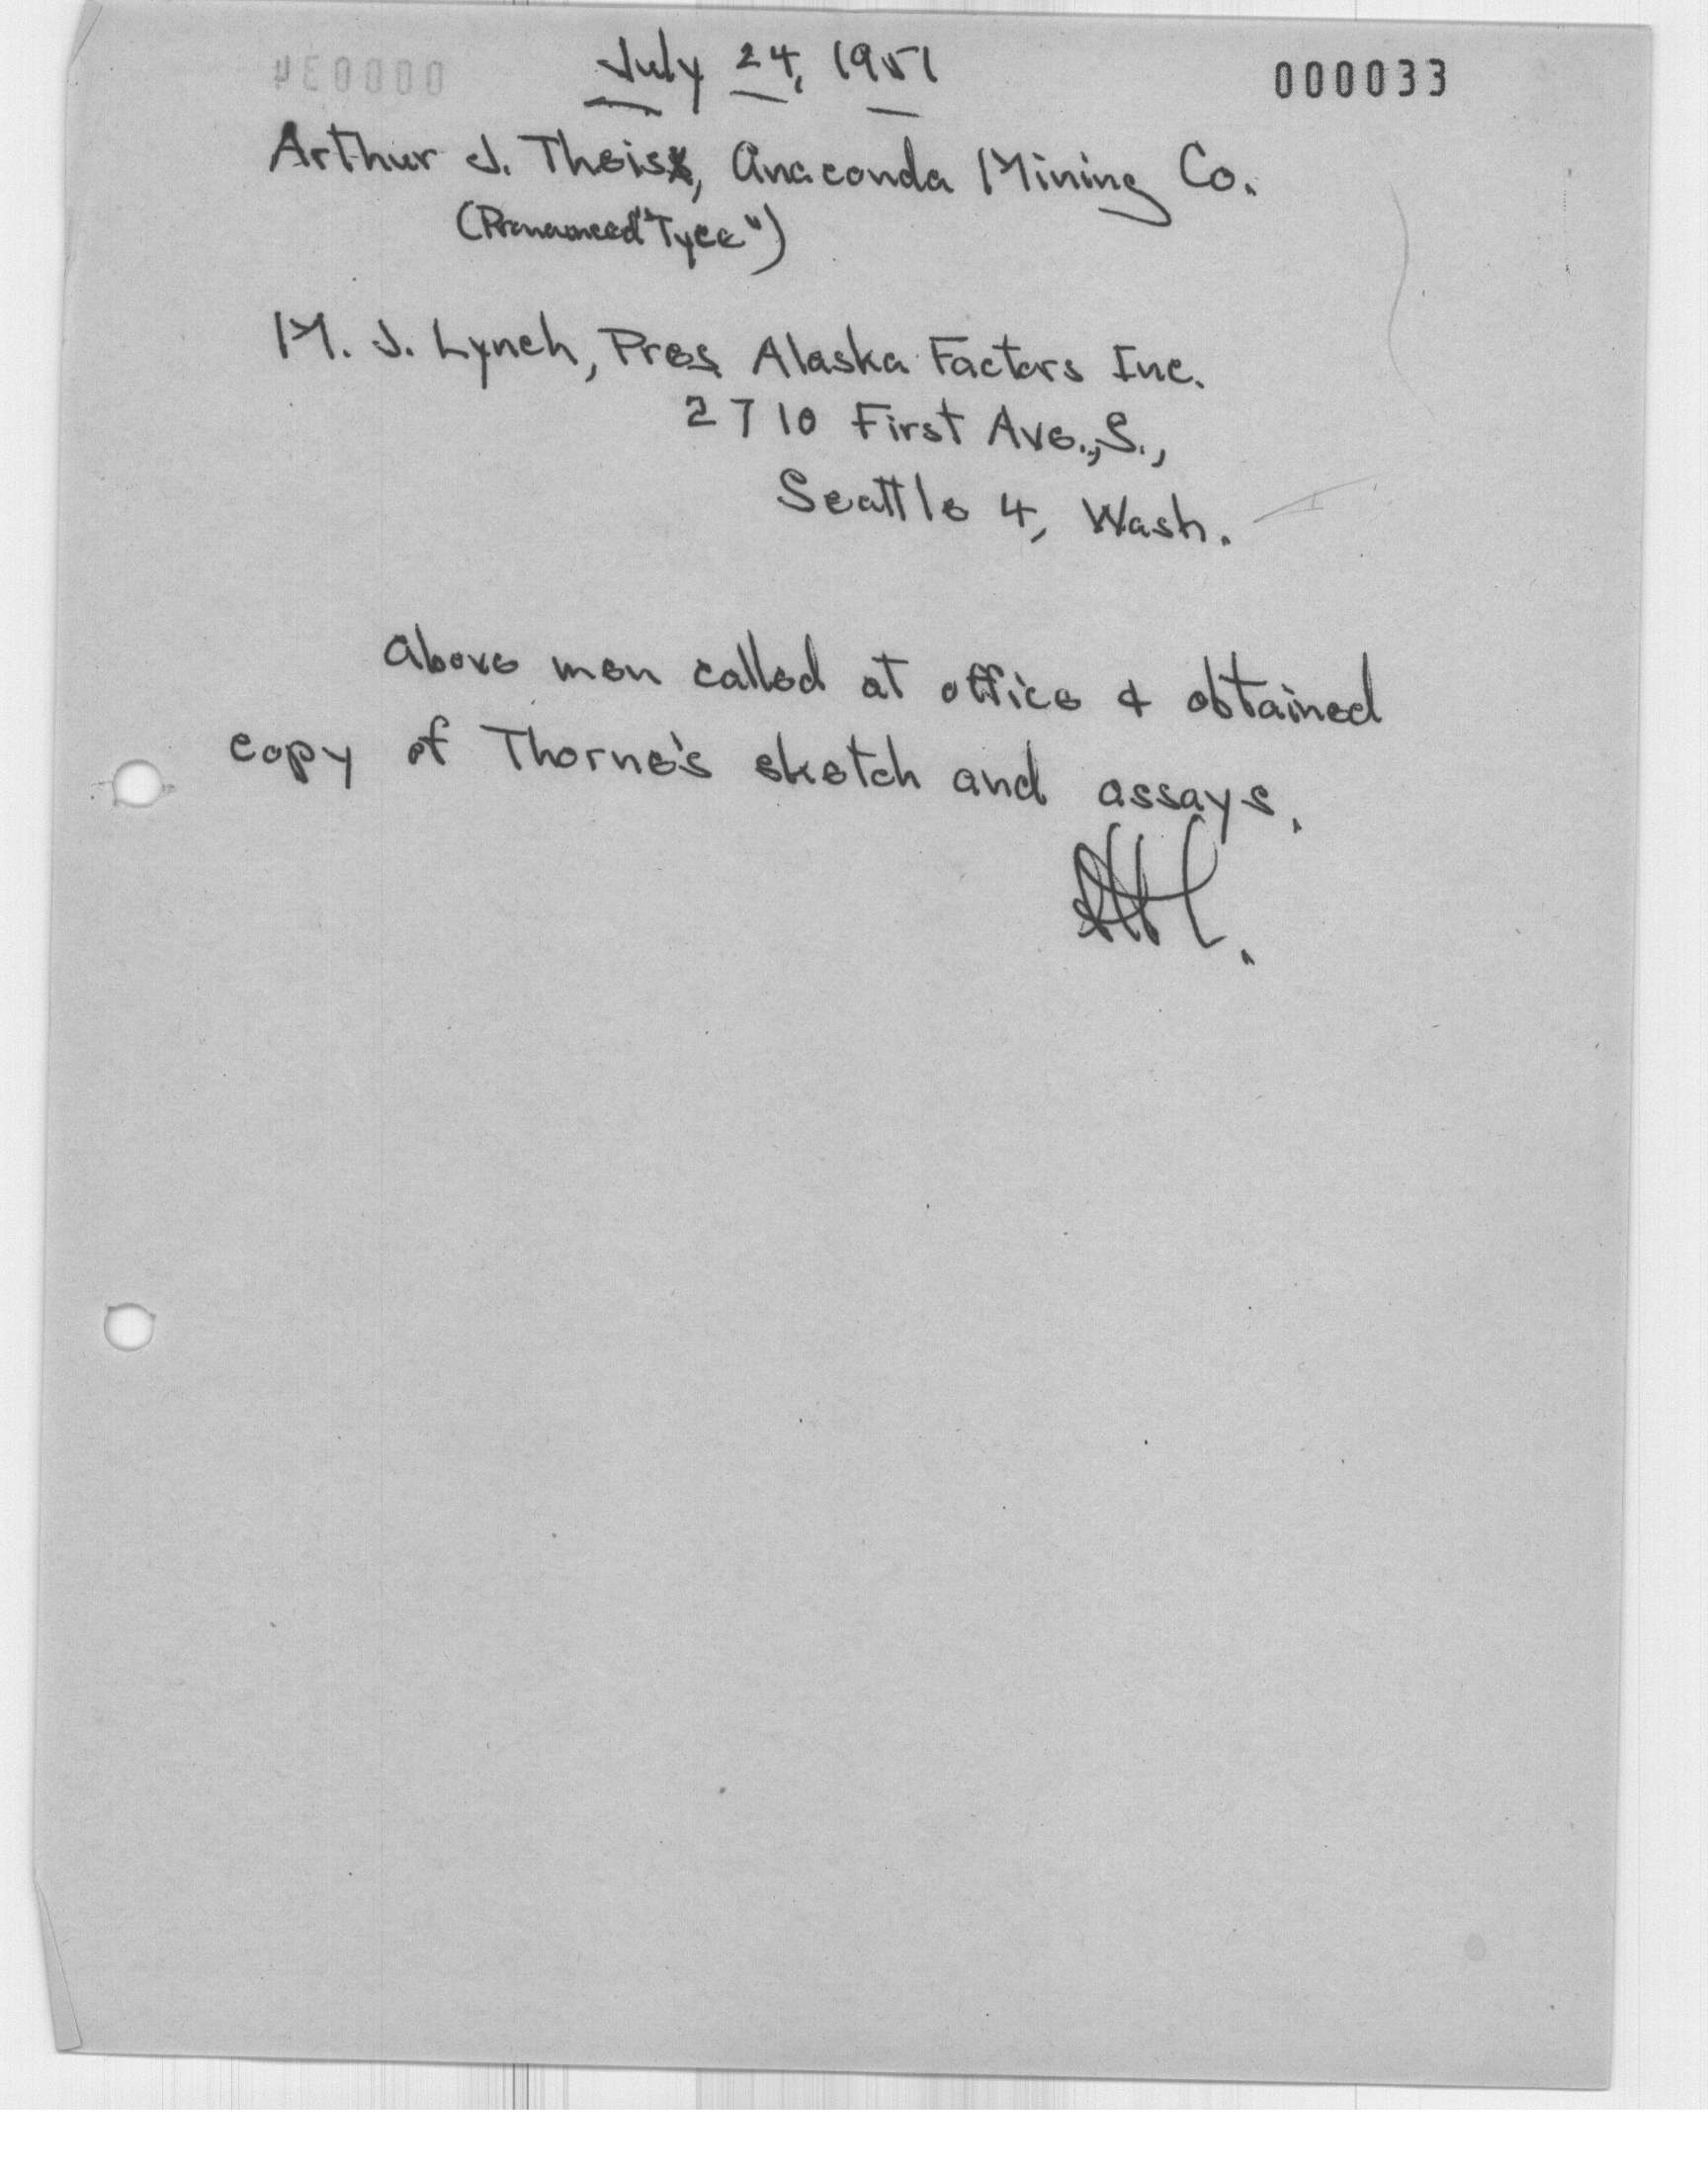 July 24, 1951
000033
Arthur J. Theis, Anaconda Mining Co.
(Pronounced "Tyce")
M. J. Lynch, Pres. Alaska Factors Inc.
2710 First Ave., S.,
Seattle 4, Wash.
Above men called at office & obtained
copy of Thorne's sketch and assays.